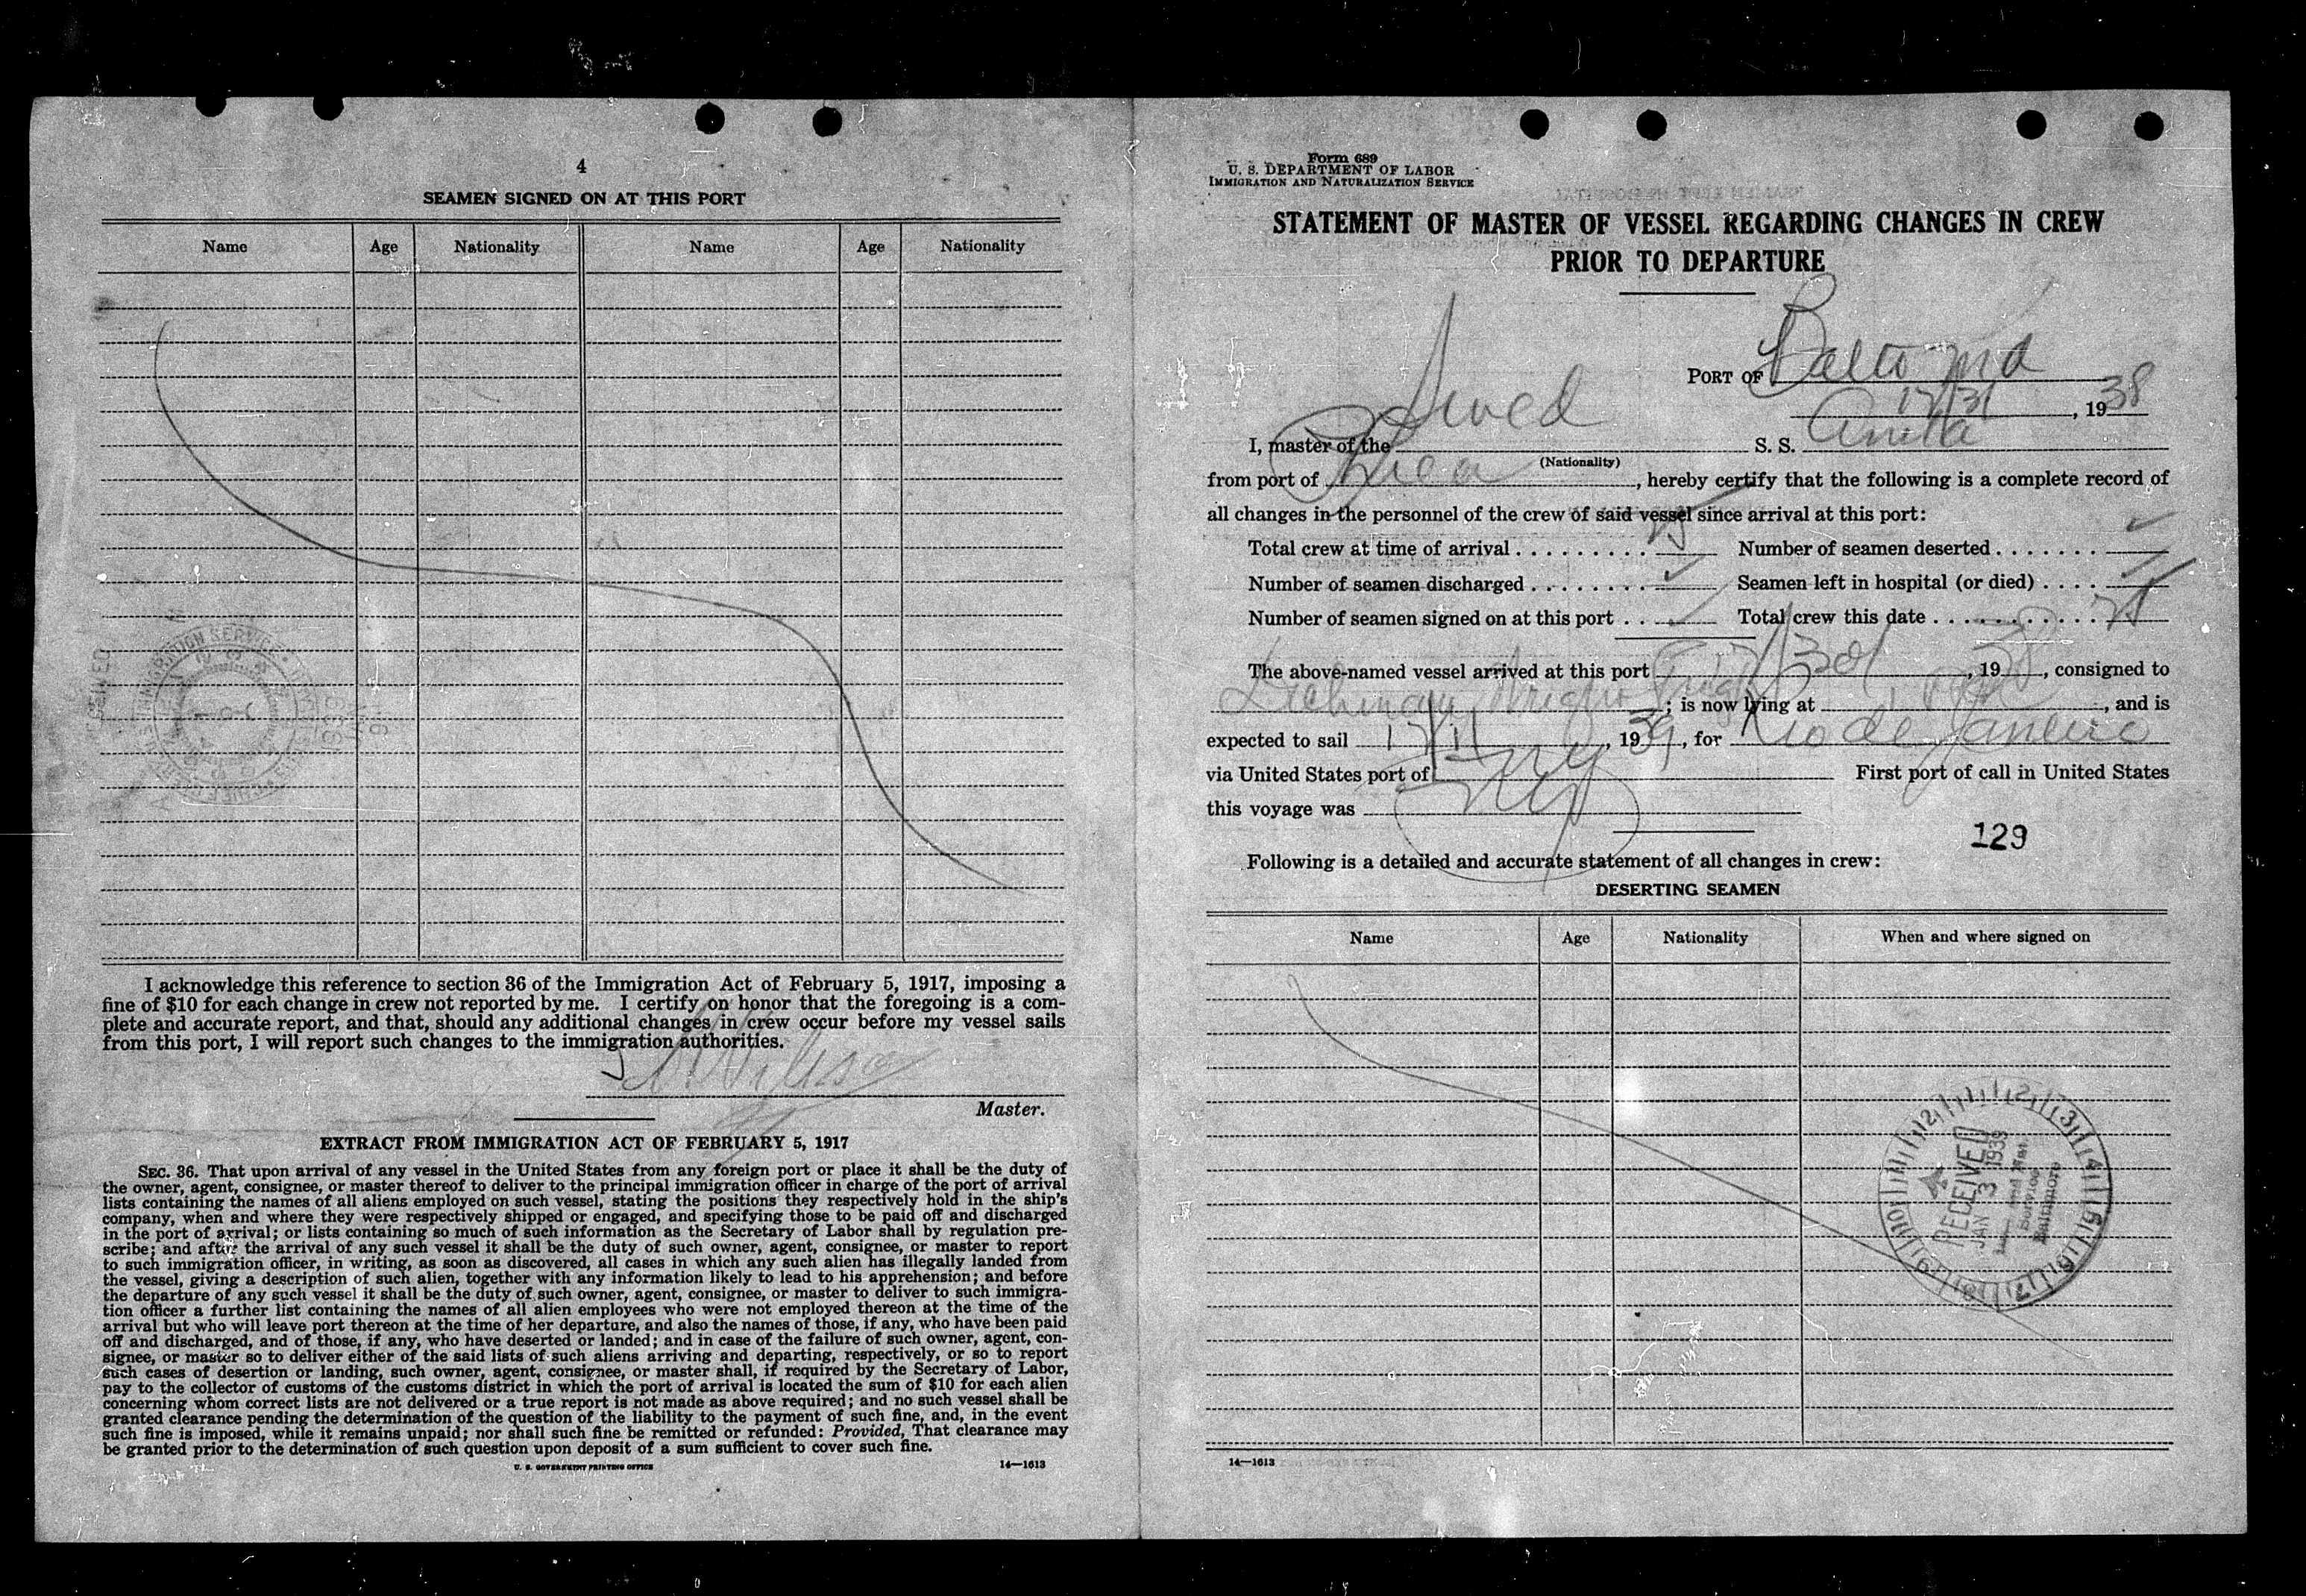 4
SEAMEN SIGNED ON AT THIS PORT
Name Age Nationality Name Age Nationality
I acknowledge this reference to section 36 of the Immigration Act of February 5, 1917, imposing a
fine of $10 for each change in crew not reported by me. I certify on honor that the foregoing is a com-
plete and accurate report, and that, should any additional changes in crew occur before my vessel sails
from this port, I will report such changes to the immigration authorities.
Master.
EXTRACT FROM IMMIGRATION ACT OF FEBRUARY 5, 1917
SEC. 36. That upon arrival of any vessel in the United States from any foreign port or place it shall be the duty of
the owner, agent, consignee, or master thereof to deliver to the principal immigration officer in charge of the port of arrival
lists containing the names of all aliens employed on such vessel, stating the positions they respectively hold in the ship's
company, when and where they were respectively shipped or engaged, and specifying those to be paid off and discharged
in the port of arrival; or lists containing so much of such information as the Secretary of Labor shall by regulation pre-
scribe; and after the arrival of any such vessel it shall be the duty of such owner, agent, consignee, or master to report
to such immigration officer, in writing, as soon as discovered, all cases in which any such alien has illegally landed from
the vessel, giving a description of such alien, together with any information likely to lead to his apprehension; and before
the departure of any such vessel it shall be the duty of such owner, agent, consignee, or master to deliver to such immigra-
tion officer a further list containing the names of all alien employees who were not employed thereon at the time of the
arrival but who will leave port thereon at the time of her departure, and also the names of those, if any, who have been paid
off and discharged, and of those, if any, who have deserted or landed; and in case of the failure of such owner, agent, con-
signee, or master so to deliver either of the said lists of such aliens arriving and departing, respectively, or so to report
such cases of desertion or landing, such owner, agent, consignee, or master shall, if required by the Secretary of Labor,
pay to the collector of customs of the customs district in which the port of arrival is located the sum of $10 for each alien
concerning whom correct lists are not delivered or a true report is not made as above required; and no such vessel shall be
granted clearance pending the determination of the question of the liability to the payment of such fine, and, in the event
such fine is imposed, while it remains unpaid; nor shall such fine be remitted or refunded: Provided, That clearance may
be granted prior to the determination of such question upon deposit of a sum sufficient to cover such fine.
U. S. GOVERNMENT PRINTING OFFICE 14—1613
Form 689
U. S. DEPARTMENT OF LABOR
IMMIGRATION AND NATURALIZATION SERVICE
STATEMENT OF MASTER OF VESSEL REGARDING CHANGES IN CREW
PRIOR TO DEPARTURE
PORT OF Balto Md
12/31, 1938
I, master of the Swed S. S. Anita
(Nationality)
from port of , hereby certify that the following is a complete record of
all changes in the personnel of the crew of said vessel since arrival at this port:
Total crew at time of arrival . . . . . . . . . 25 Number of seamen deserted . . . . . . . ✓
Number of seamen discharged . . . . . . . . ✓ Seamen left in hospital (or died) . . . . ✓
Number of seamen signed on at this port . . . ✓ Total crew this date . . . . . . . . . . . 25
The above-named vessel arrived at this port , 1938, consigned to
; is now lying at , and is
expected to sail , 1939, for Rio de Janeiro
via United States port of NY First port of call in United States
this voyage was NY
129
Following is a detailed and accurate statement of all changes in crew:
DESERTING SEAMEN
Name Age Nationality When and where signed on
RECEIVED
JAN 3 1939
Imm. and Nat.
Service
Baltimore
14—1613